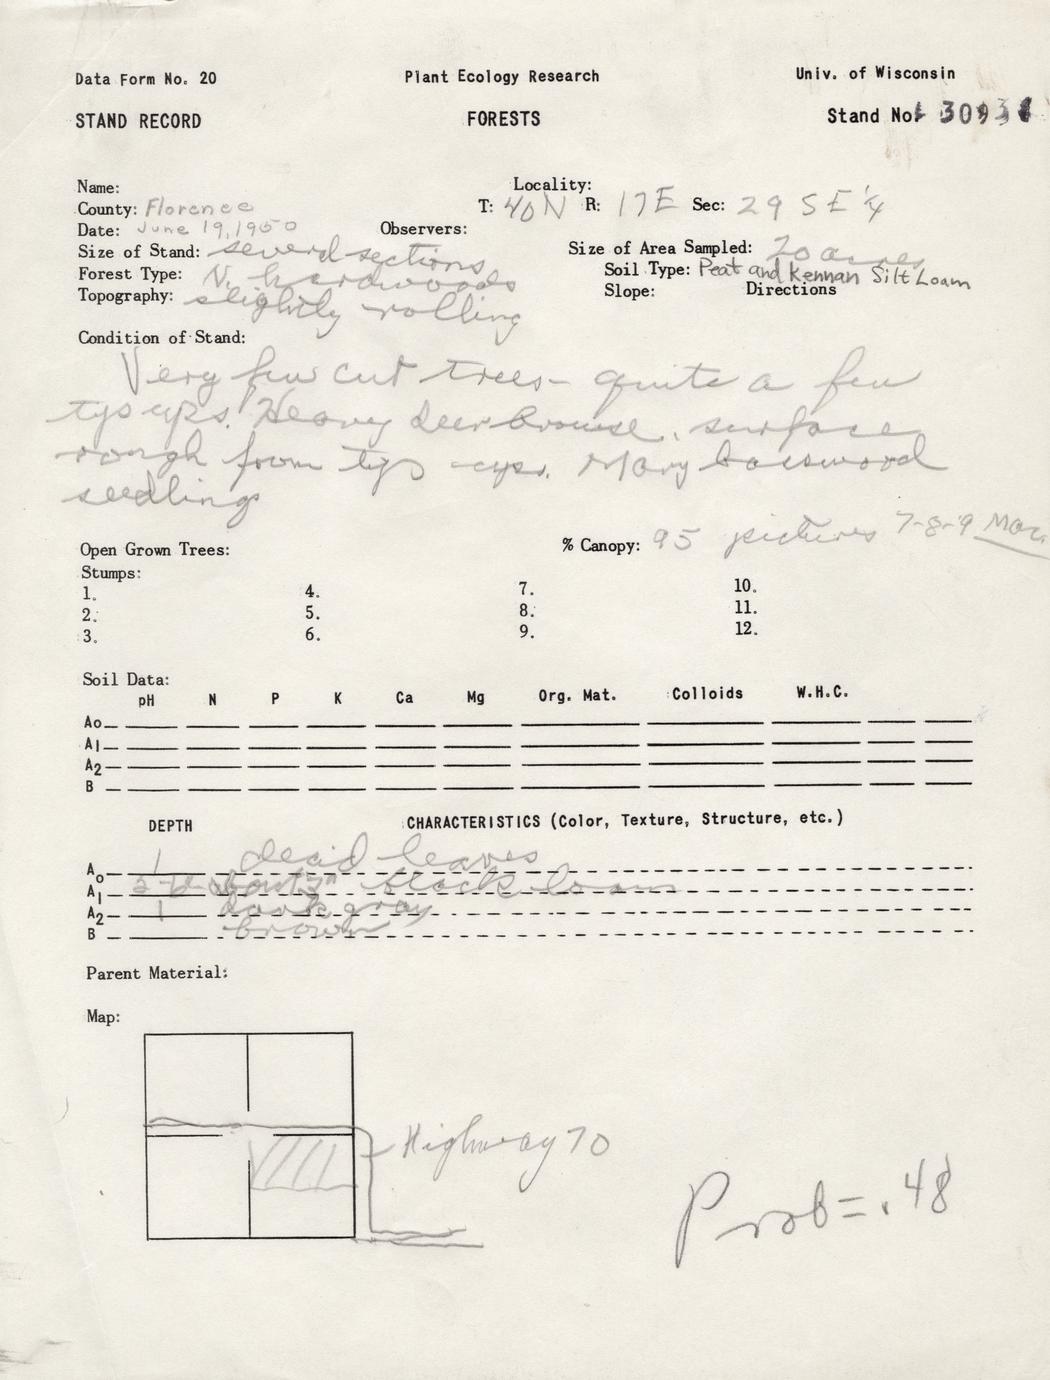 Data Form No. 20 Plant Ecology Research Univ. of Wisconsin
STAND RECORD FORESTS Stand No.
Name: Locality:
County: Florence T: 40N R: 17E Sec: 29 SE 1/4
Date: June 19, 1950 Observers:
Size of Stand: several sections Size of Area Sampled: 20 acres
Forest Type: N. hardwoods Soil Type: Peat and Kennan Silt Loam
Topography: slightly rolling Slope: Directions
Condition of Stand:
Very few cut trees - quite a few
tip ups. Heavy deer browse. surface
rough from tip ups. Many basswood
seedlings
Open Grown Trees: % Canopy: 95 pictures 7-8-9 Mac.
Stumps:
1. 4. 7. 10.
2. 5. 8. 11.
3. 6. 9. 12.
Soil Data:
pH N P K Ca Mg Org. Mat. Colloids W.H.C.
Ao
A1
A2
B
DEPTH CHARACTERISTICS (Color, Texture, Structure, etc.)
Ao 1 dead leaves
A1 black loam
A2 1 dark gray
B brown
Parent Material:
Map:
Highway 70
Prob = .48